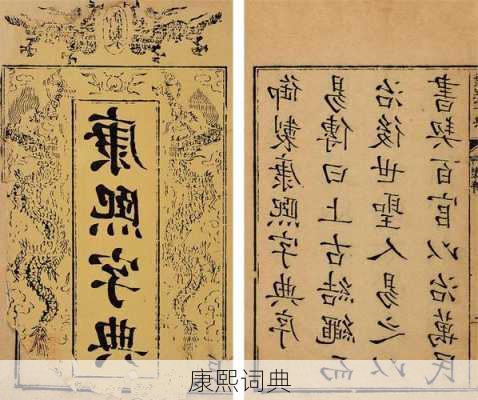 康熙字典
御製康熙字典序
易傳曰上古結繩而
治後世聖人易之以
書契百官以治萬民
康熙词典